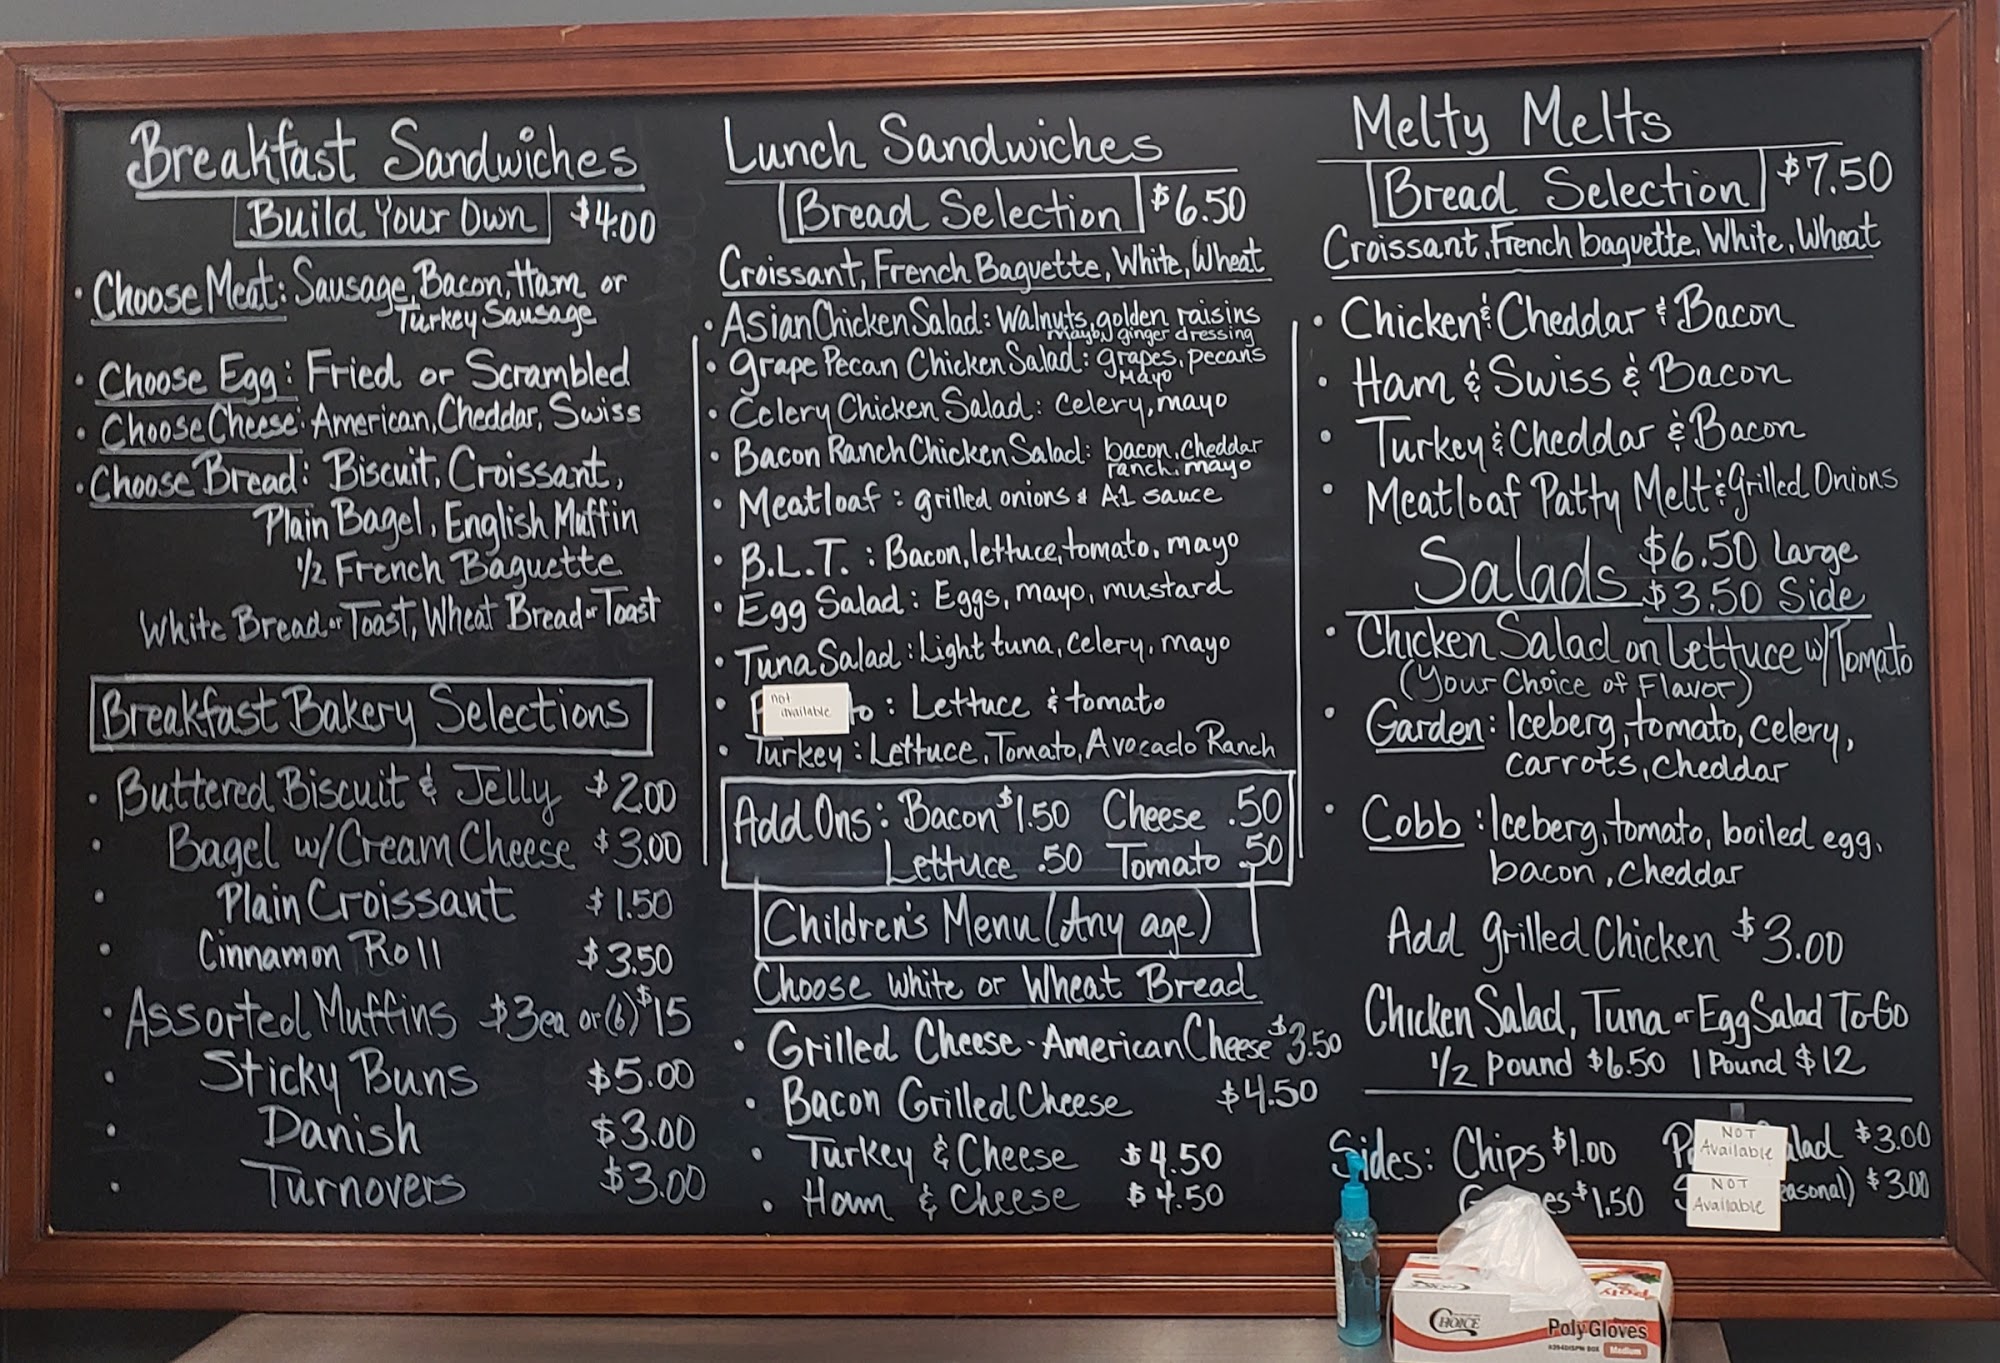 Breakfast Sandwiches
Build Your Own $4.00
• Choose Meat: Sausage, Bacon, Ham or
Turkey Sausage
• Choose Egg: Fried or Scrambled
• Choose Cheese: American, Cheddar, Swiss
• Choose Bread: Biscuit, Croissant,
Plain Bagel, English Muffin
1/2 French Baguette
White Bread or Toast, Wheat Bread or Toast
Breakfast Bakery Selections
• Buttered Biscuit & Jelly $2.00
• Bagel w/Cream Cheese $3.00
• Plain Croissant $1.50
• Cinnamon Roll $3.50
• Assorted Muffins $3ea or (6) $15
• Sticky Buns $5.00
• Danish $3.00
• Turnovers $3.00
Lunch Sandwiches
Bread Selection $6.50
Croissant, French Baguette, White, Wheat
• Asian Chicken Salad: Walnuts, golden raisins
mayo, ginger dressing
• Grape Pecan Chicken Salad: grapes, pecans
Mayo
• Celery Chicken Salad: celery, mayo
• Bacon Ranch Chicken Salad: bacon, cheddar
ranch, mayo
• Meatloaf: grilled onions & A1 sauce
• B.L.T.: Bacon, lettuce, tomato, mayo
• Egg Salad: Eggs, mayo, mustard
• Tuna Salad: Light tuna, celery, mayo
not
available
• : Lettuce & tomato
• Turkey: Lettuce, Tomato, Avocado Ranch
Add Ons: Bacon $1.50 Cheese .50
Lettuce .50 Tomato .50
Children's Menu (Any age)
Choose White or Wheat Bread
• Grilled Cheese - American Cheese $3.50
• Bacon Grilled Cheese $4.50
• Turkey & Cheese $4.50
• Ham & Cheese $4.50
Melty Melts
Bread Selection $7.50
Croissant, French baguette, White, Wheat
• Chicken & Cheddar & Bacon
• Ham & Swiss & Bacon
• Turkey & Cheddar & Bacon
• Meatloaf Patty Melt & Grilled Onions
Salads $6.50 Large
$3.50 Side
• Chicken Salad on Lettuce w/Tomato
(Your Choice of Flavor)
• Garden: Iceberg, tomato, celery,
carrots, cheddar
• Cobb: Iceberg, tomato, boiled egg,
bacon, cheddar
Add grilled Chicken $3.00
Chicken Salad, Tuna or Egg Salad To-Go
1/2 pound $6.50 1 Pound $12
Sides: Chips $1.00 $3.00
NOT
Available
$1.50 $3.00
NOT
Available
CHOICE
Poly Gloves
Medium